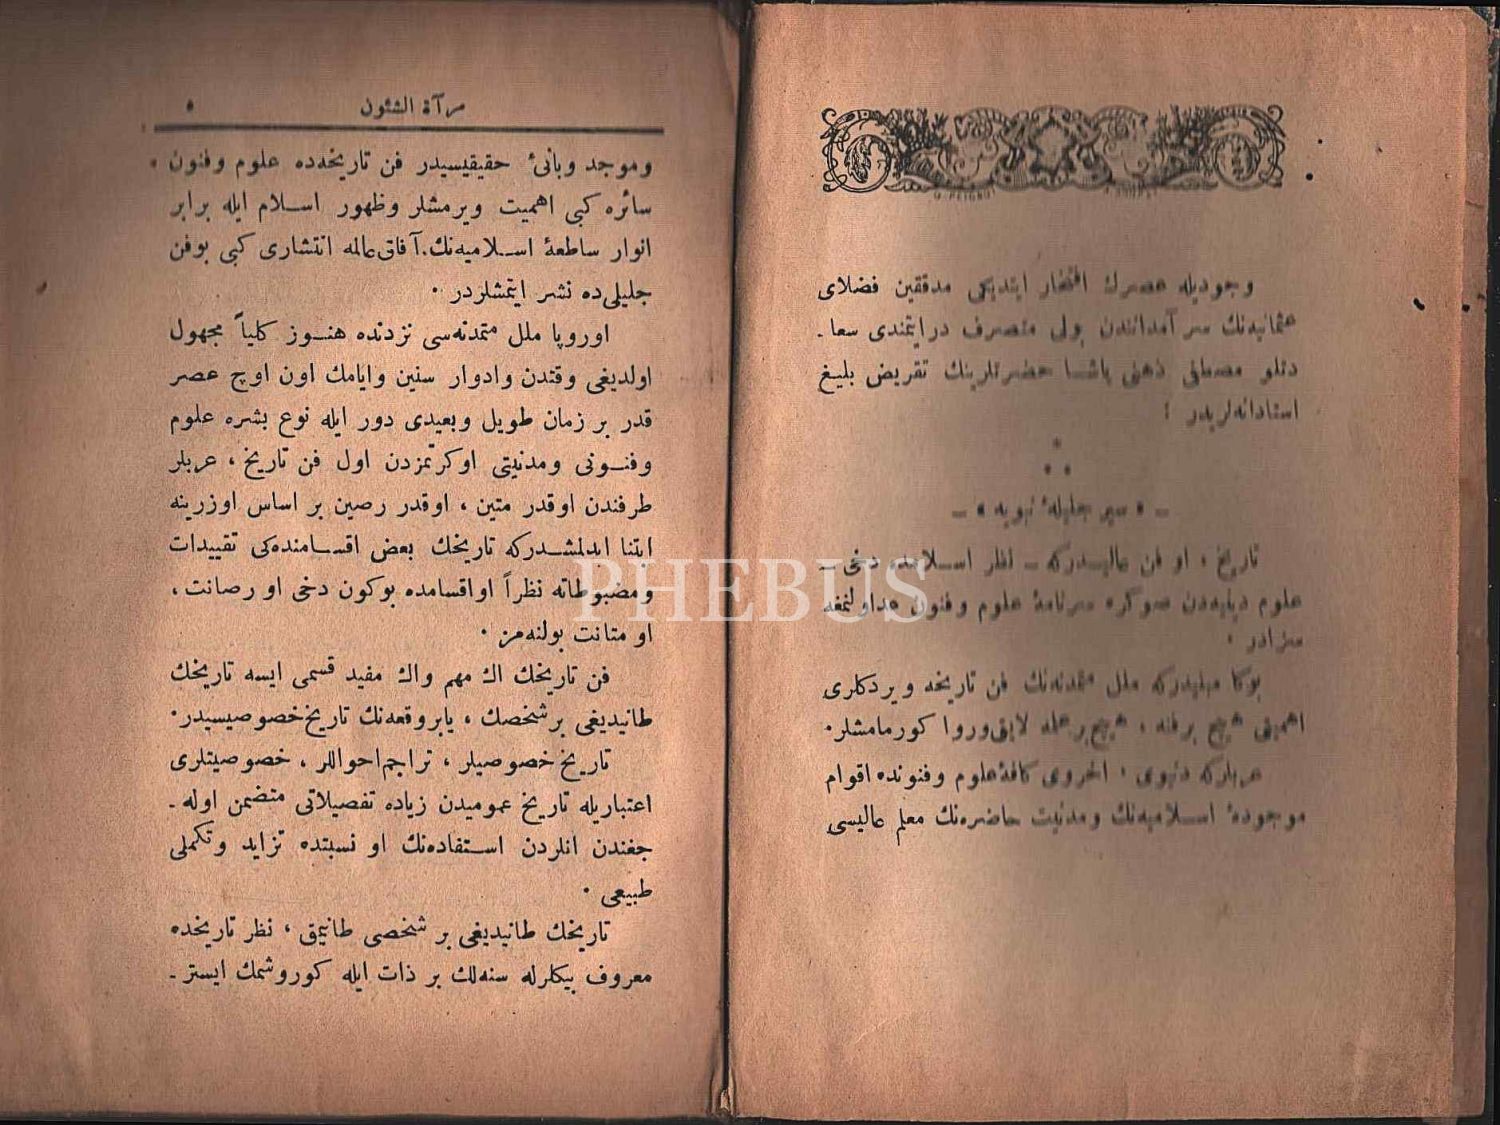 وجوديله عصرك افتخار ايتديكى مدققين فضلاى
عثمانيه‌نك سر آمدانندن بولى متصرف درايتمندى سعا-
دتلو مصطفى ذهنى پاشا حضرتلرينك تقريض بليغ
استادانه‌لريدر :
- « سير جليلۀ نبويه » -
تاريخ ، او فن عاليدركه - نظر اسلامده دخى -
علوم دينيه‌دن صوكره سرنامۀ علوم وفنون عد اولنمغه
سزادر .
بوكا مبنيدركه ملل متمدنه‌نك فن تاريخه ويردكلرى
اهميتى هيچ برفنه ، هيچ برعلمه لايق وروا كورمامشلر.
عربلركه دنيوى ، اخروى كافۀ علوم وفنونده اقوام
موجودۀ اسلاميه‌نك ومدنيت حاضره‌نك معلم عاليسى
مرآة الشئون ٥
وموجد وبانئ حقيقيسيدر فن تاريخه‌ده علوم وفنون
سائره كبى اهميت ويرمشلر وظهور اسلام ايله برابر
انوار ساطعۀ اسلاميه‌نك آفاق عالمه انتشارى كبى بوفن
جليلى‌ده نشر ايتمشلردر .
اوروپا ملل متمدنه‌سى نزدنده هنوز كلياً مجهول
اولديغى وقتدن وادوار سنين وايامك اون اوچ عصر
قدر بر زمان طويل وبعيدى دور ايله نوع بشره علوم
وفنونى ومدنيتى اوكرتمزدن اول فن تاريخ ، عربلر
طرفندن اوقدر متين ، اوقدر رصين بر اساس اوزرينه
ابتنا ايدلمشدركه تاريخك بعض اقسامنده‌كى تقييدات
ومضبوطاته نظراً اواقسامده بوكون دخى او رصانت ،
او متانت بولنه‌مز .
فن تاريخك اك مهم واك مفيد قسمى ايسه تاريخك
طانيديغى برشخصك ، يابروقعه‌نك تاريخ خصوصيسيدر.
تاريخ خصوصيلر ، تراجم احواللر ، خصوصيتلرى
اعتباريله تاريخ عموميدن زياده تفصيلاتى متضمن اوله-
جغندن انلردن استفاده‌نك او نسبتده تزايد وتكملى
طبيعى .
تاريخك طانيديغى بر شخصى طانيمق ، نظر تاريخده
معروف بيكلرله سنه‌لك بر ذات ايله كوروشمك ايستر-
PHEBUS